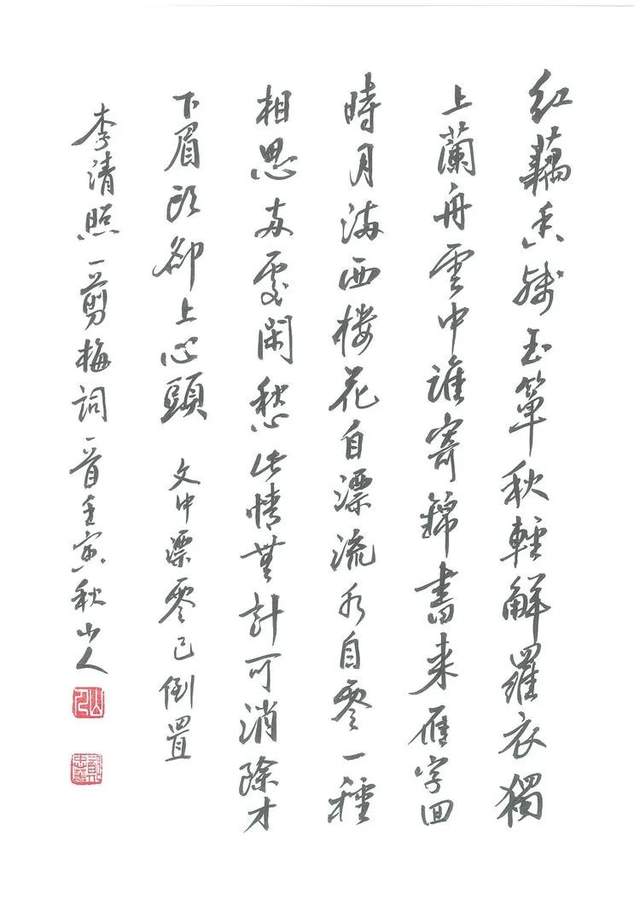 紅藕香殘玉簟秋輕解羅衣獨
上蘭舟雲中誰寄錦書来雁字回
時月滿西楼花自漂流水自零一種
相思兩處閑愁此情無計可消除才
下眉頭卻上心頭 文中漂零已倒置
李清照一剪梅詞一首壬寅秋山人